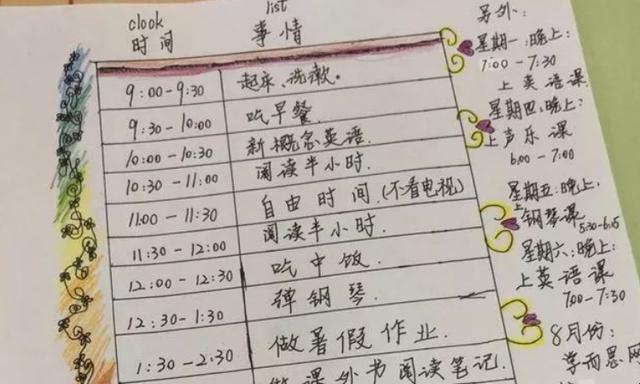 clook
list
时间
事情
9:00-9:30 起床、洗漱。
9:30-10:00 吃早餐
10:00-10:30 新概念英语.
10:30-11:00 阅读半小时.
11:00-11:30 自由时间.(不看电视)
11:30-12:00 阅读半小时.
12:00-12:30 吃中饭.
12:30-1:30 弹钢琴.
1:30-2:30 做暑假作业.
做课外书阅读笔记.
另外:
星期一:晚上:
7:00-7:30
上英语课
星期四:晚上:
上声乐课
6:00-7:00
星期五:晚上,
上钢琴课
5:30-6:15
星期六:晚上:
上英语课
7:00-7:30
8月份:
学而思网